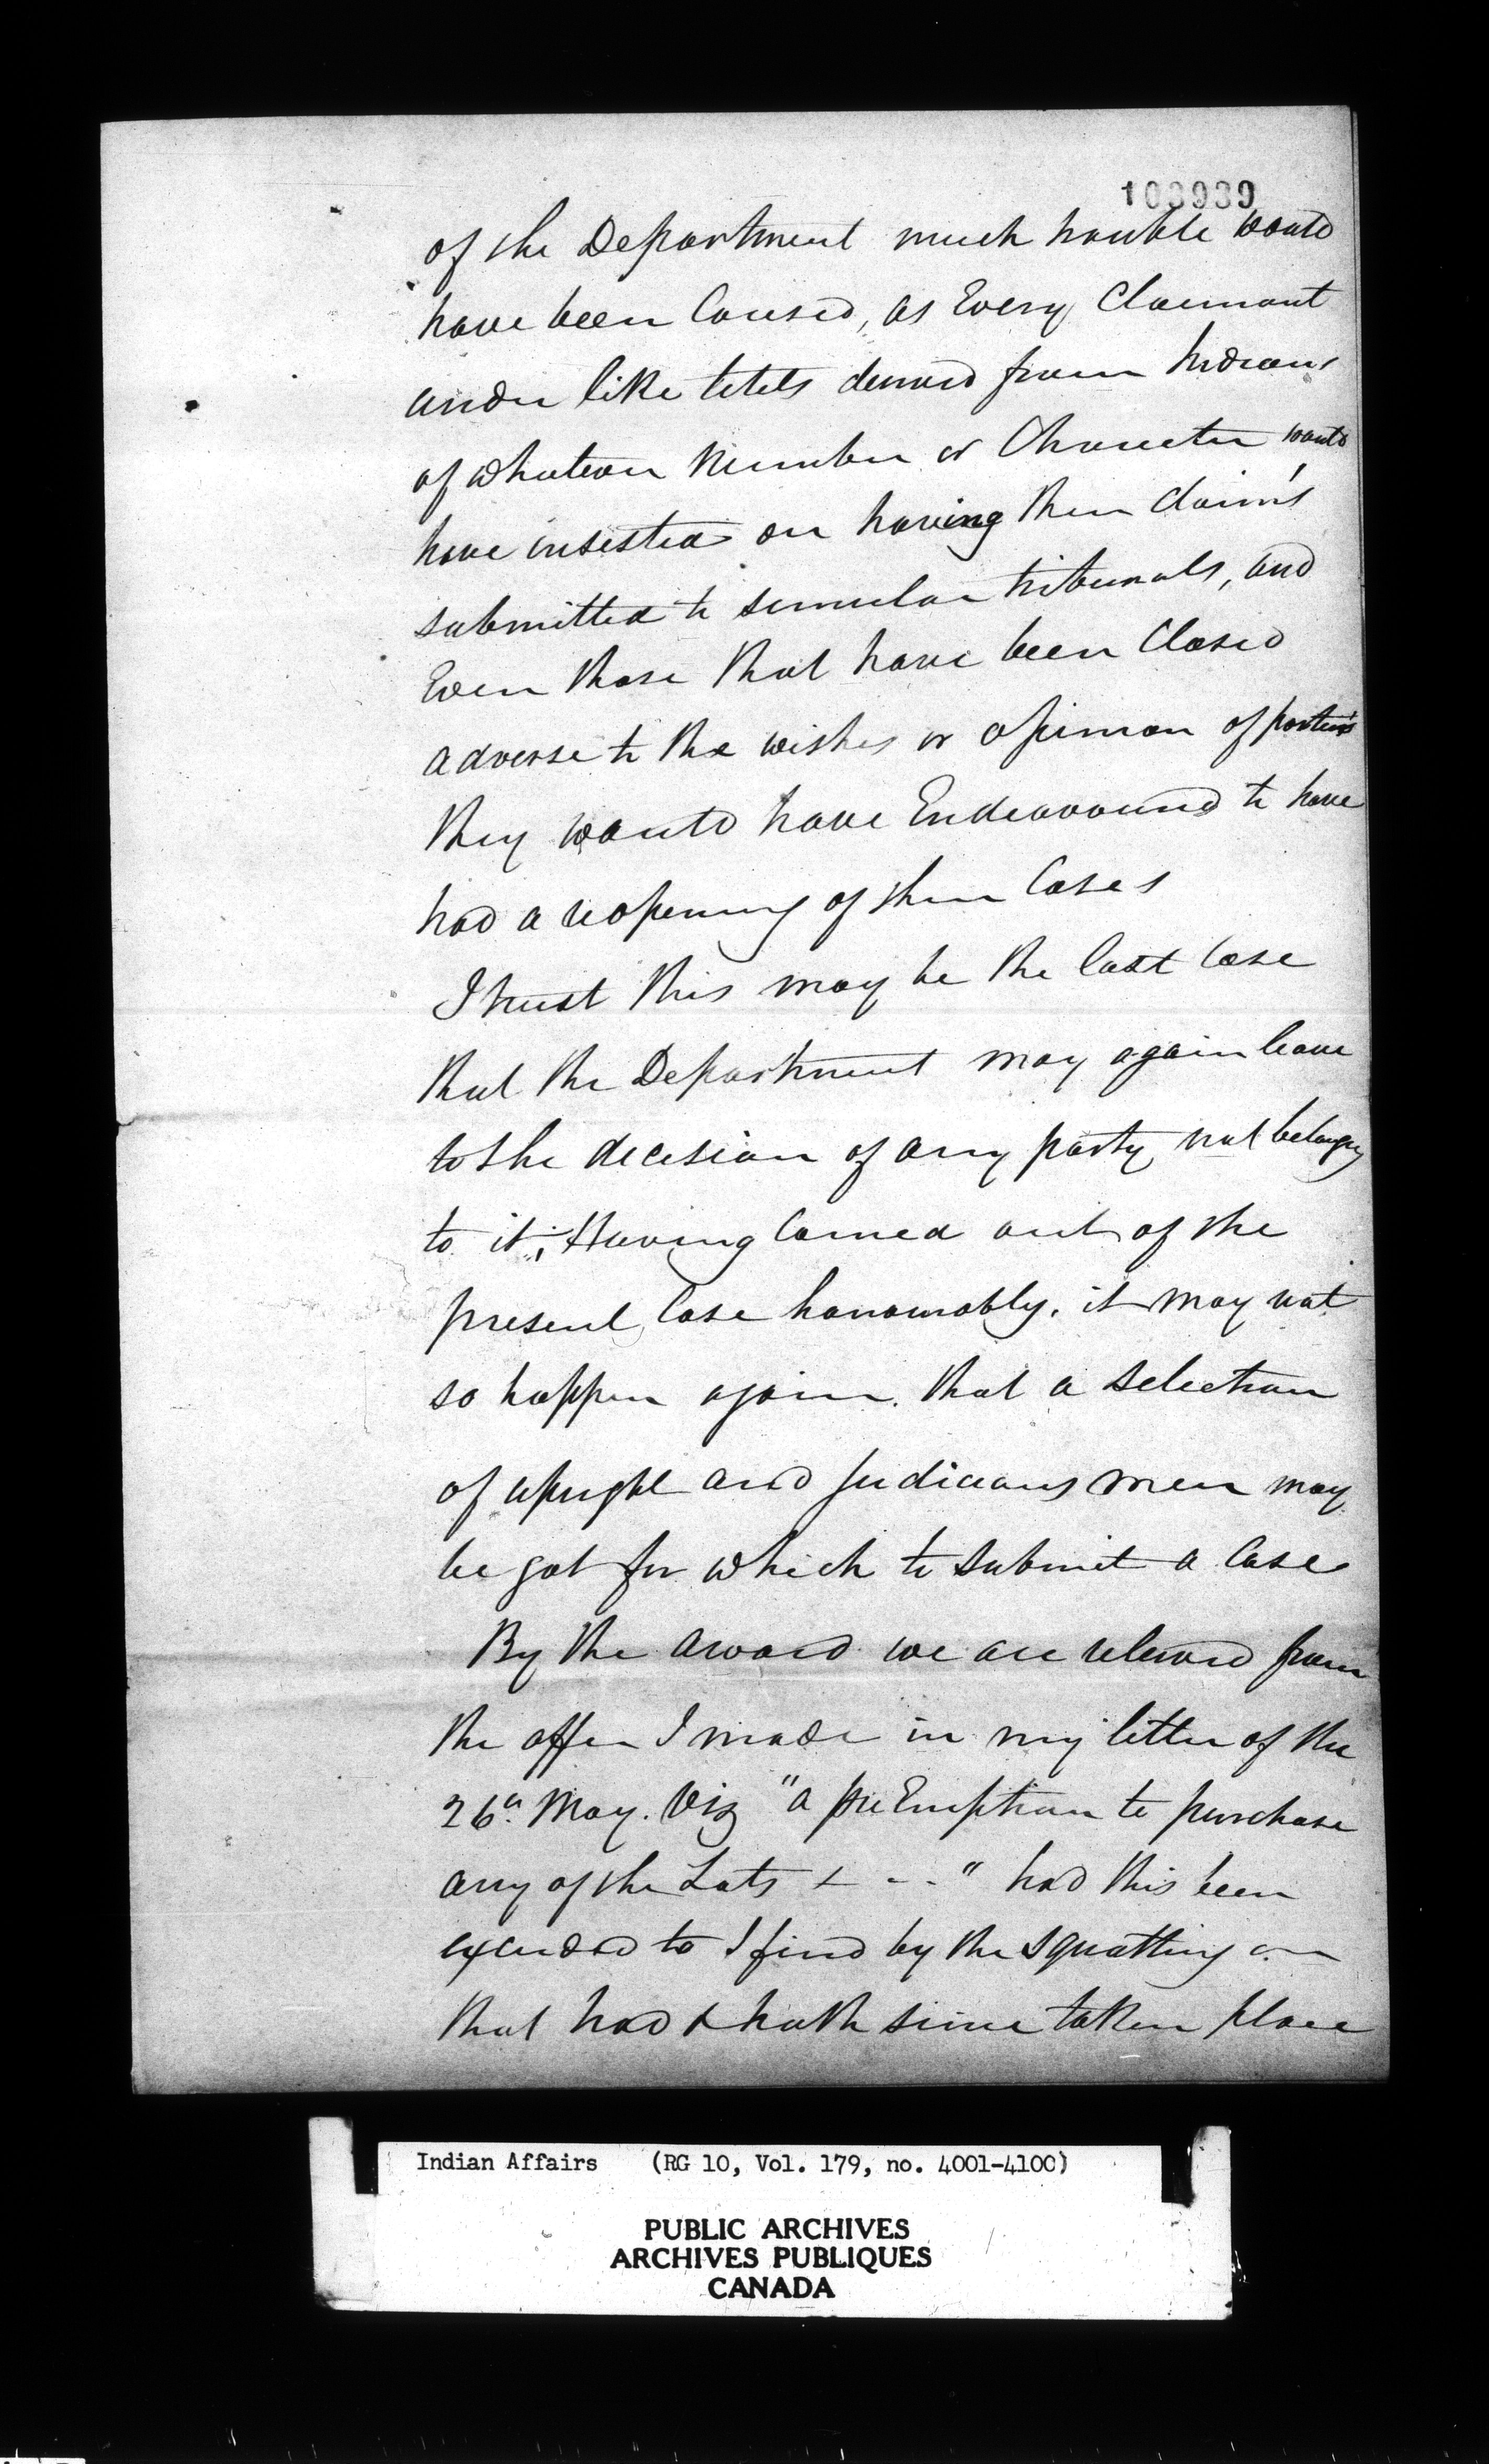 103939
of the Department much trouble would
have been Caused, as Every Claimant
under like titels derived from Indians
of whatever Number or Character would
have insisted on having their claim's
submitted to simular tribunals, and
Even those that have been Closed
adverse to the wishes or opinion of parties
they would have Endeavoured to have
had a reopening of their Cases
I trust this may be the last Case
that the Department may again leave
to the decision of any party not belonging
to it; Having Carried out of the
present Case honourably, it may not
so happen again. that a selection
of upright and Judicious men may
be got for which to submit a Case
By the award we are relieved from
the offer I made in my letter of the
26th May. Viz "a preEmption to purchase
any of the Lots + - - " had this been
to I find by the squatting on
that had & hath since taken place
Indian Affairs (RG 10, Vol. 179, no. 4001-4100)
PUBLIC ARCHIVES
ARCHIVES PUBLIQUES
CANADA